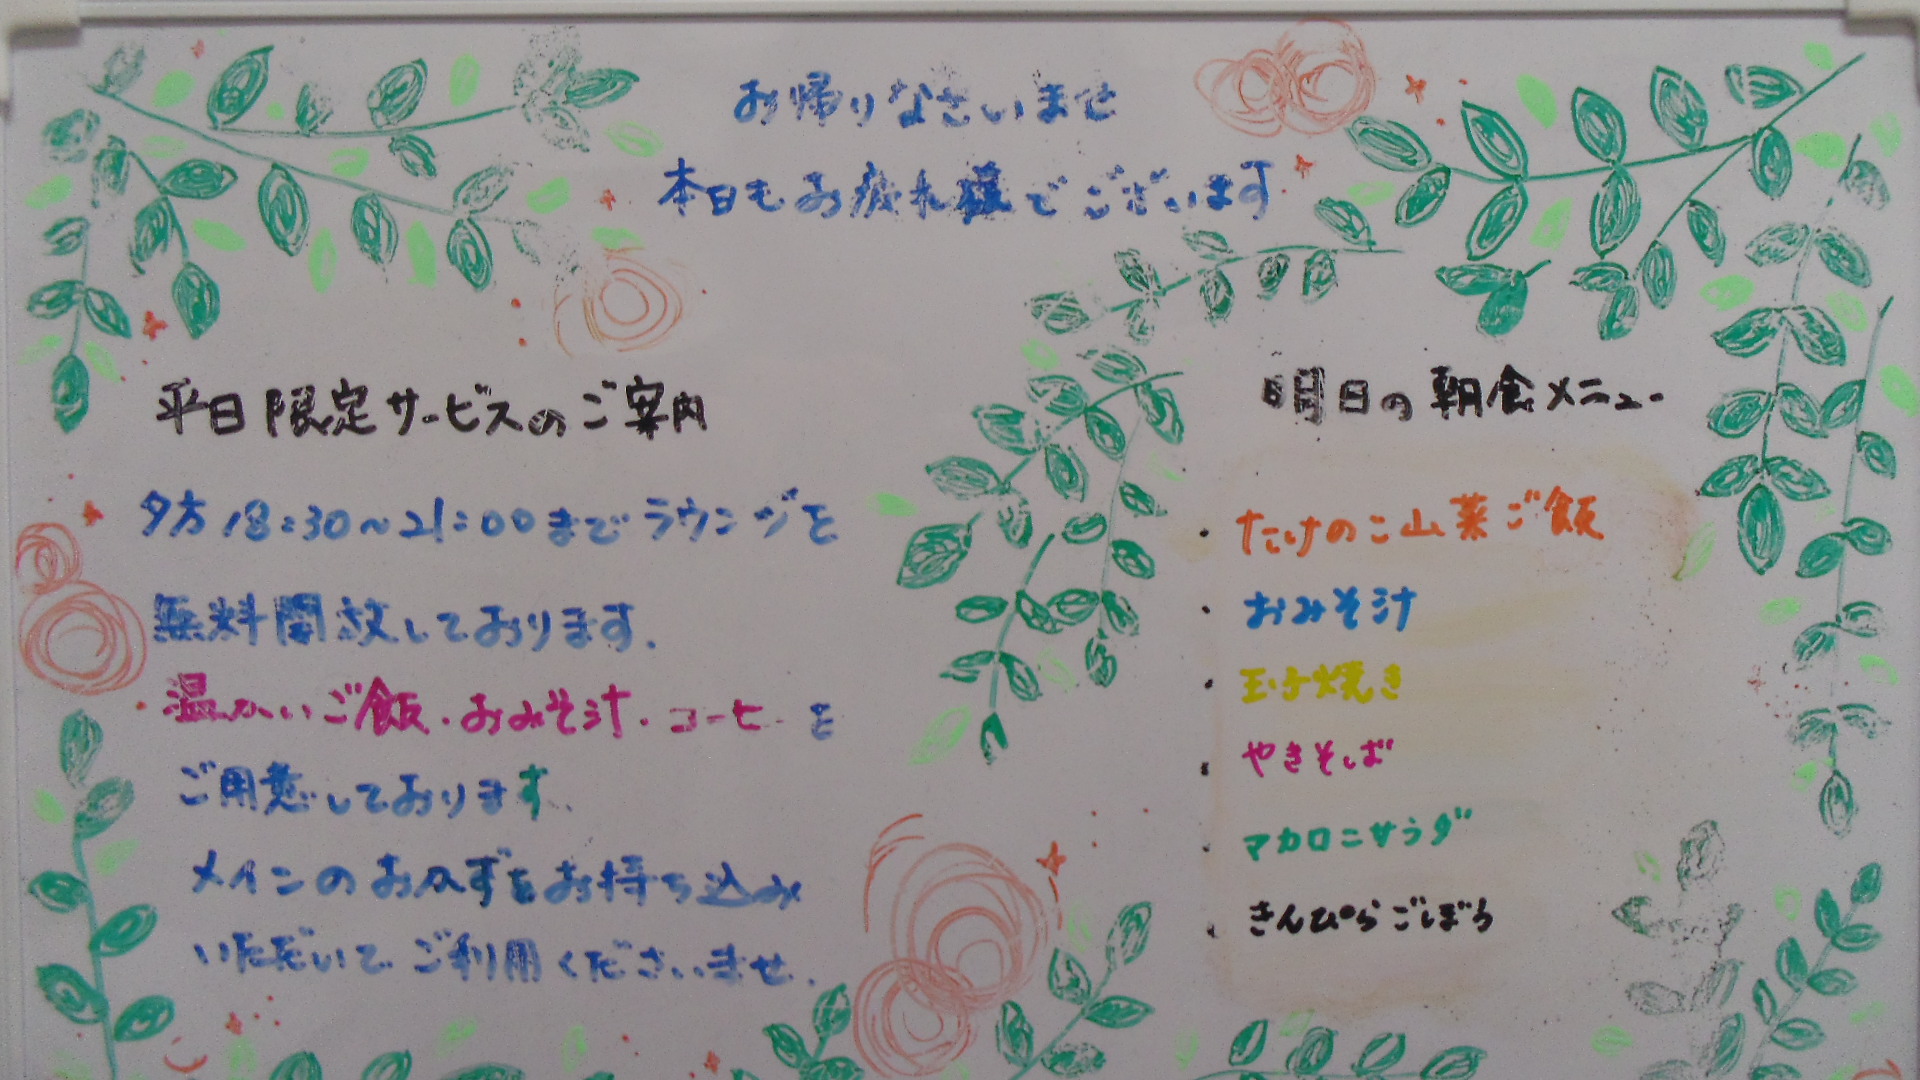 お帰りなさいませ
本日もお疲れ様でございます
平日限定サービスのご案内
夕方18:30～21:00までラウンジを
無料開放しております.
温かいご飯・おみそ汁・コーヒーを
ご用意しております.
メインのおかずをお持ち込み
いただいてご利用くださいませ.
明日の朝食メニュー
・たけのこ山菜ご飯
・おみそ汁
・玉子焼き
・やきそば
・マカロニサラダ
・きんぴらごぼう